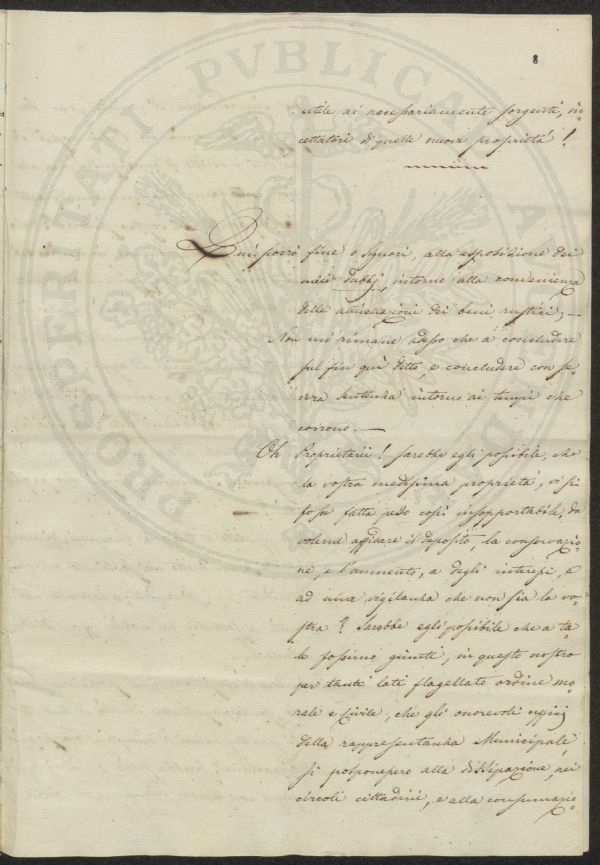 8
utile ai necessariamente sorgenti, in=
cettatori di quelle nuove proprietà!
Quì porrò fine o Signori, alla esposizione dei
miei dubbj, intorno alla convenienza
delle allivellazioni dei beni rustici; —
Non mi rimane adesso che a concludere
sul fin quì detto, e concludere con se=
vera sentenza intorno ai tempi che
corrono. —
Oh Proprietarii! sarebbe egli possibile, che
la vostra medesima proprietà, vi si
fosse fatta peso così insopportabile, da
volerne affidare il deposito, la conservazio=
ne, e l'aumento, a degli interessi, e
ad una vigilanza che non sia la vo=
stra? Sarebbe egli possibile che a ta=
le fossimo giunti, in questo nostro
per tanti lati flagellato ordine mo=
rale e Civile, che gli onorevoli ufficj
della rappresentanza Municipale,
si posponessero alla dissipazione, nei
circoli cittadini, e alla consumazio=
PROSPERITATI PVBLICAE AV